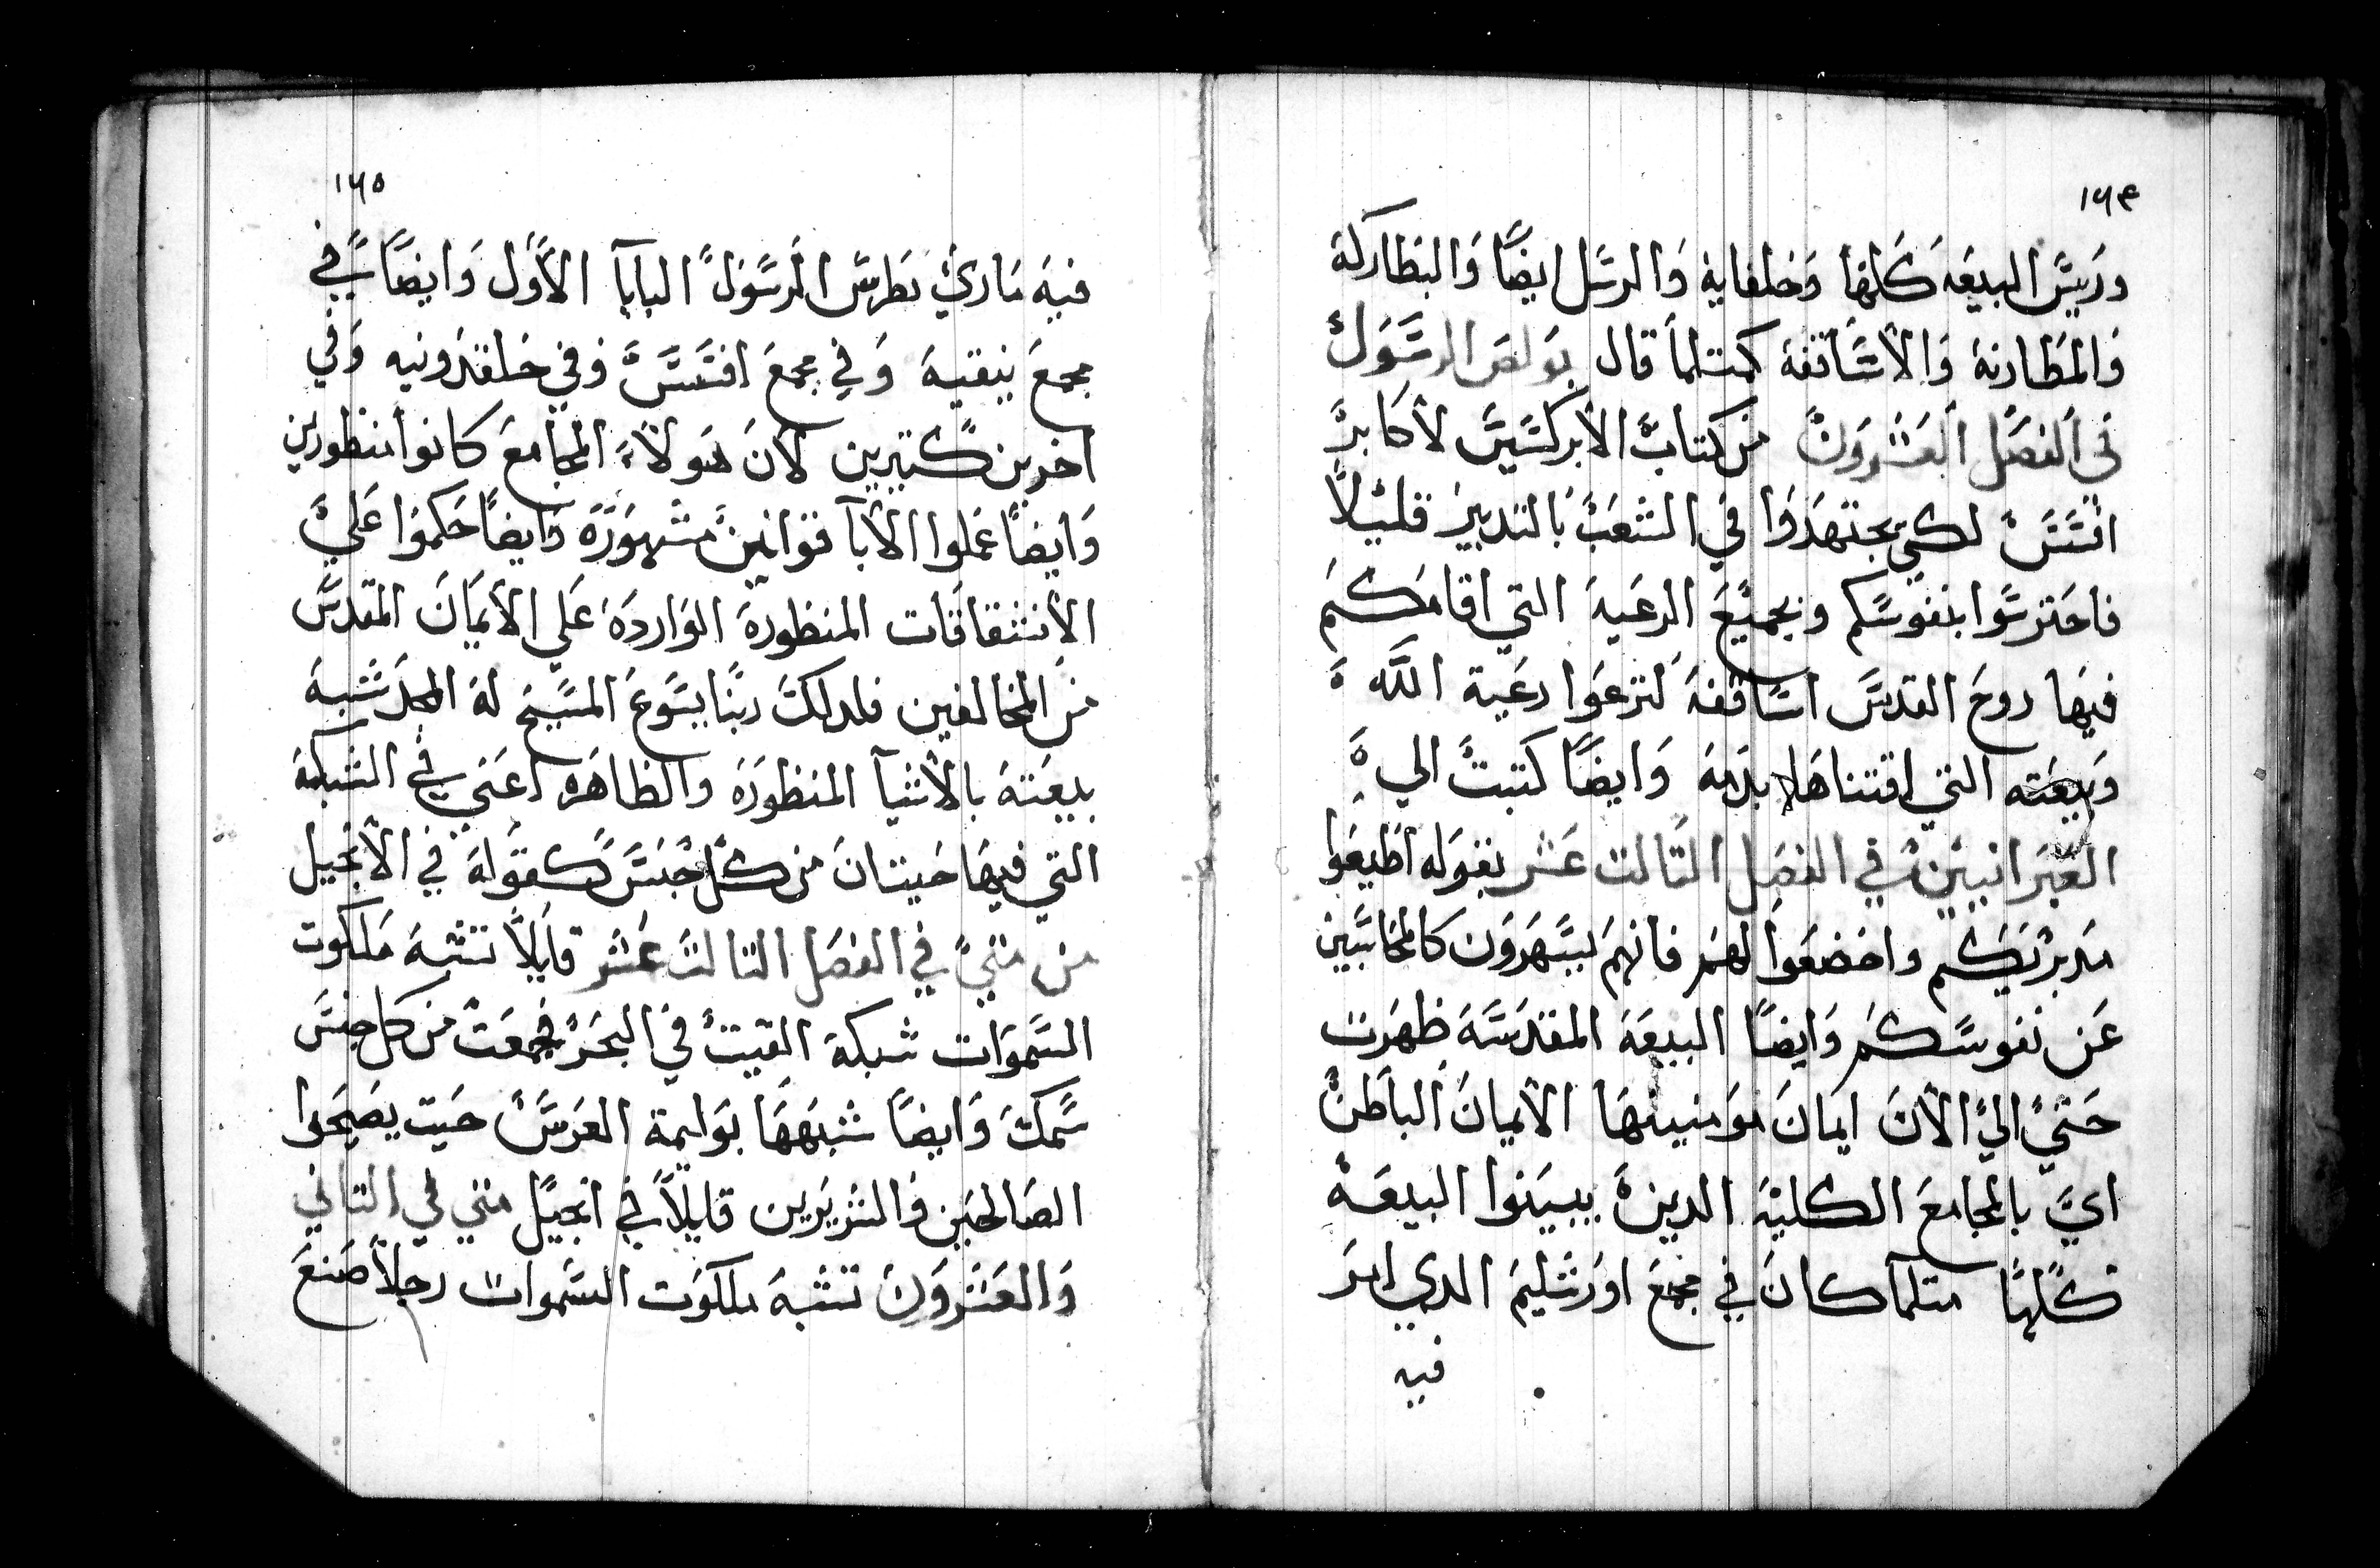 ١٦٤
وريّس البيعه كلها وخلفايه والرسل ايضًا والبطاركة
والمطارنة والاساقفة كمتلما قال بولص الرسول
فى الفصل العشرون من كتاب الابركسيس لاكابر
افسس لكي يجتهدوا في الشعب بالتدبير قليلاً
فاحترسوا بنفوسكم وبجميع الرعيه التي اقامكم
فيها روح القدس اساقفه لترعوا رعية الله
وبيعته التي اقتناها بدمه وايضًا كتبت الي
العبرانيين في الفصل التالت عشر بقوله اطيعوا
مدبرنيكم واخضعوا لهم فانهم ليسهرون كالمحاسبين
عن نفوسكم وايضًا البيعة المقدسة ظهرت
حتي الي الان ايمان مومنينها الايمان الباطن
اي بالمجامع الكلية الدين يبينوا البيعة
كلها متلما كان في مجمع اورشليم الدي امر
فيه
١٦٥
فيه ماري بطرس الرسول البابا الاول وايضًا في
مجمع نيقية وفي مجمع افسس وفي خلقدونيه وفي
اخرين كتيرين لان هولاء المجامع كانوا منظورين
وايضًا عملوا الابا قوانين مشهورة وايضًا حكموا علي
الانشقاقات المنظورة الواردة علي الايمان المقدس
من المخالفين فلدلك ربنا يسوع المسيح له المجد شبه
بيعته بالاشيآ المنظورة والظاهره اعني في الشبكة
التي فيها حيتان من كل جنس كقوله في الانجيل
من متي في الفصل التالت عشر قايلاً تشبه ملكوت
السموات شبكة القيت في البحر فجمعت من كل جنس
سمك وايضًا شبهها بوليمة العرس حيت يصيحوا
الصالحين والشريرين قايلاً في انجيل متي في التاني
والعشرون تشبه ملكوت السموات رجلاً صنع